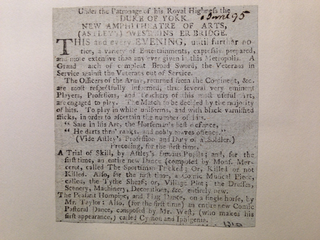 Under the Patronage of his Royal Highness the
DUKE OF YORK.
NEW AMPHITHEATRE OF ARTS,
(ASTLEY's) WESTMINSTER BRIDGE.
THIS and every EVENING, until further no-
tice, a variety of Entertainments, expressly prepared,
and more extensive than any ever given in this Metropolis. A
Grand Match of compleat Broad Sword, the Veterans in
Service against the Veterans out of Service.
The Officers of the Army, returned from the Continent, &c.
are most respectfully informed, that several very eminent
Players, Professors, and Teachers of this most useful Art,
are engaged to play. The Match to be decided by the majority
of hits. To play in white uniforms, and with black varnished
sticks, in order to ascertain the number of hits.
" Safe in his Arc, the Horseman's bold defence,
" He darts the vengeance, and nobly moves offence."
(Vide Astley's Profession and Duty of a Soldier.)
Preceding, for the first time,
A Trial of Skill, by Astley's famous Pupils; and, for the
first time, an entire new Dance (composed by Mons. Mer-
cerot, called The Sportsman Tricked; Or, Killed or not
Killed. Also, for the first time, a Comic Musical Piece,
called, the Tythe Sheaf; or, Village Plot; the Dresses,
Scenery, Machinery, Decorations, &c. entirely new.
The Peasant Hornpipe, and Flag Dance, on a single horse, by
Mr. Taylor: Also, (for the first time) an entire new Comic
Pastoral Dance, composed by Mr. West, (who makes his
first appearance,) called Cymon and Iphigenia.